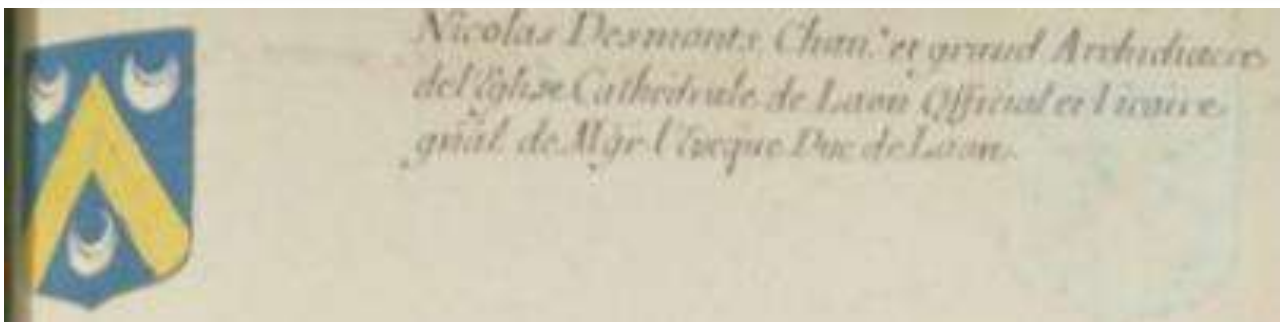 Nicolas Desmonts Chan.e et grand Archidiacre
de l'Eglise Cathedrale de Laon Official et Vicaire
gñal de Mgr l'Eveque Duc de Laon.